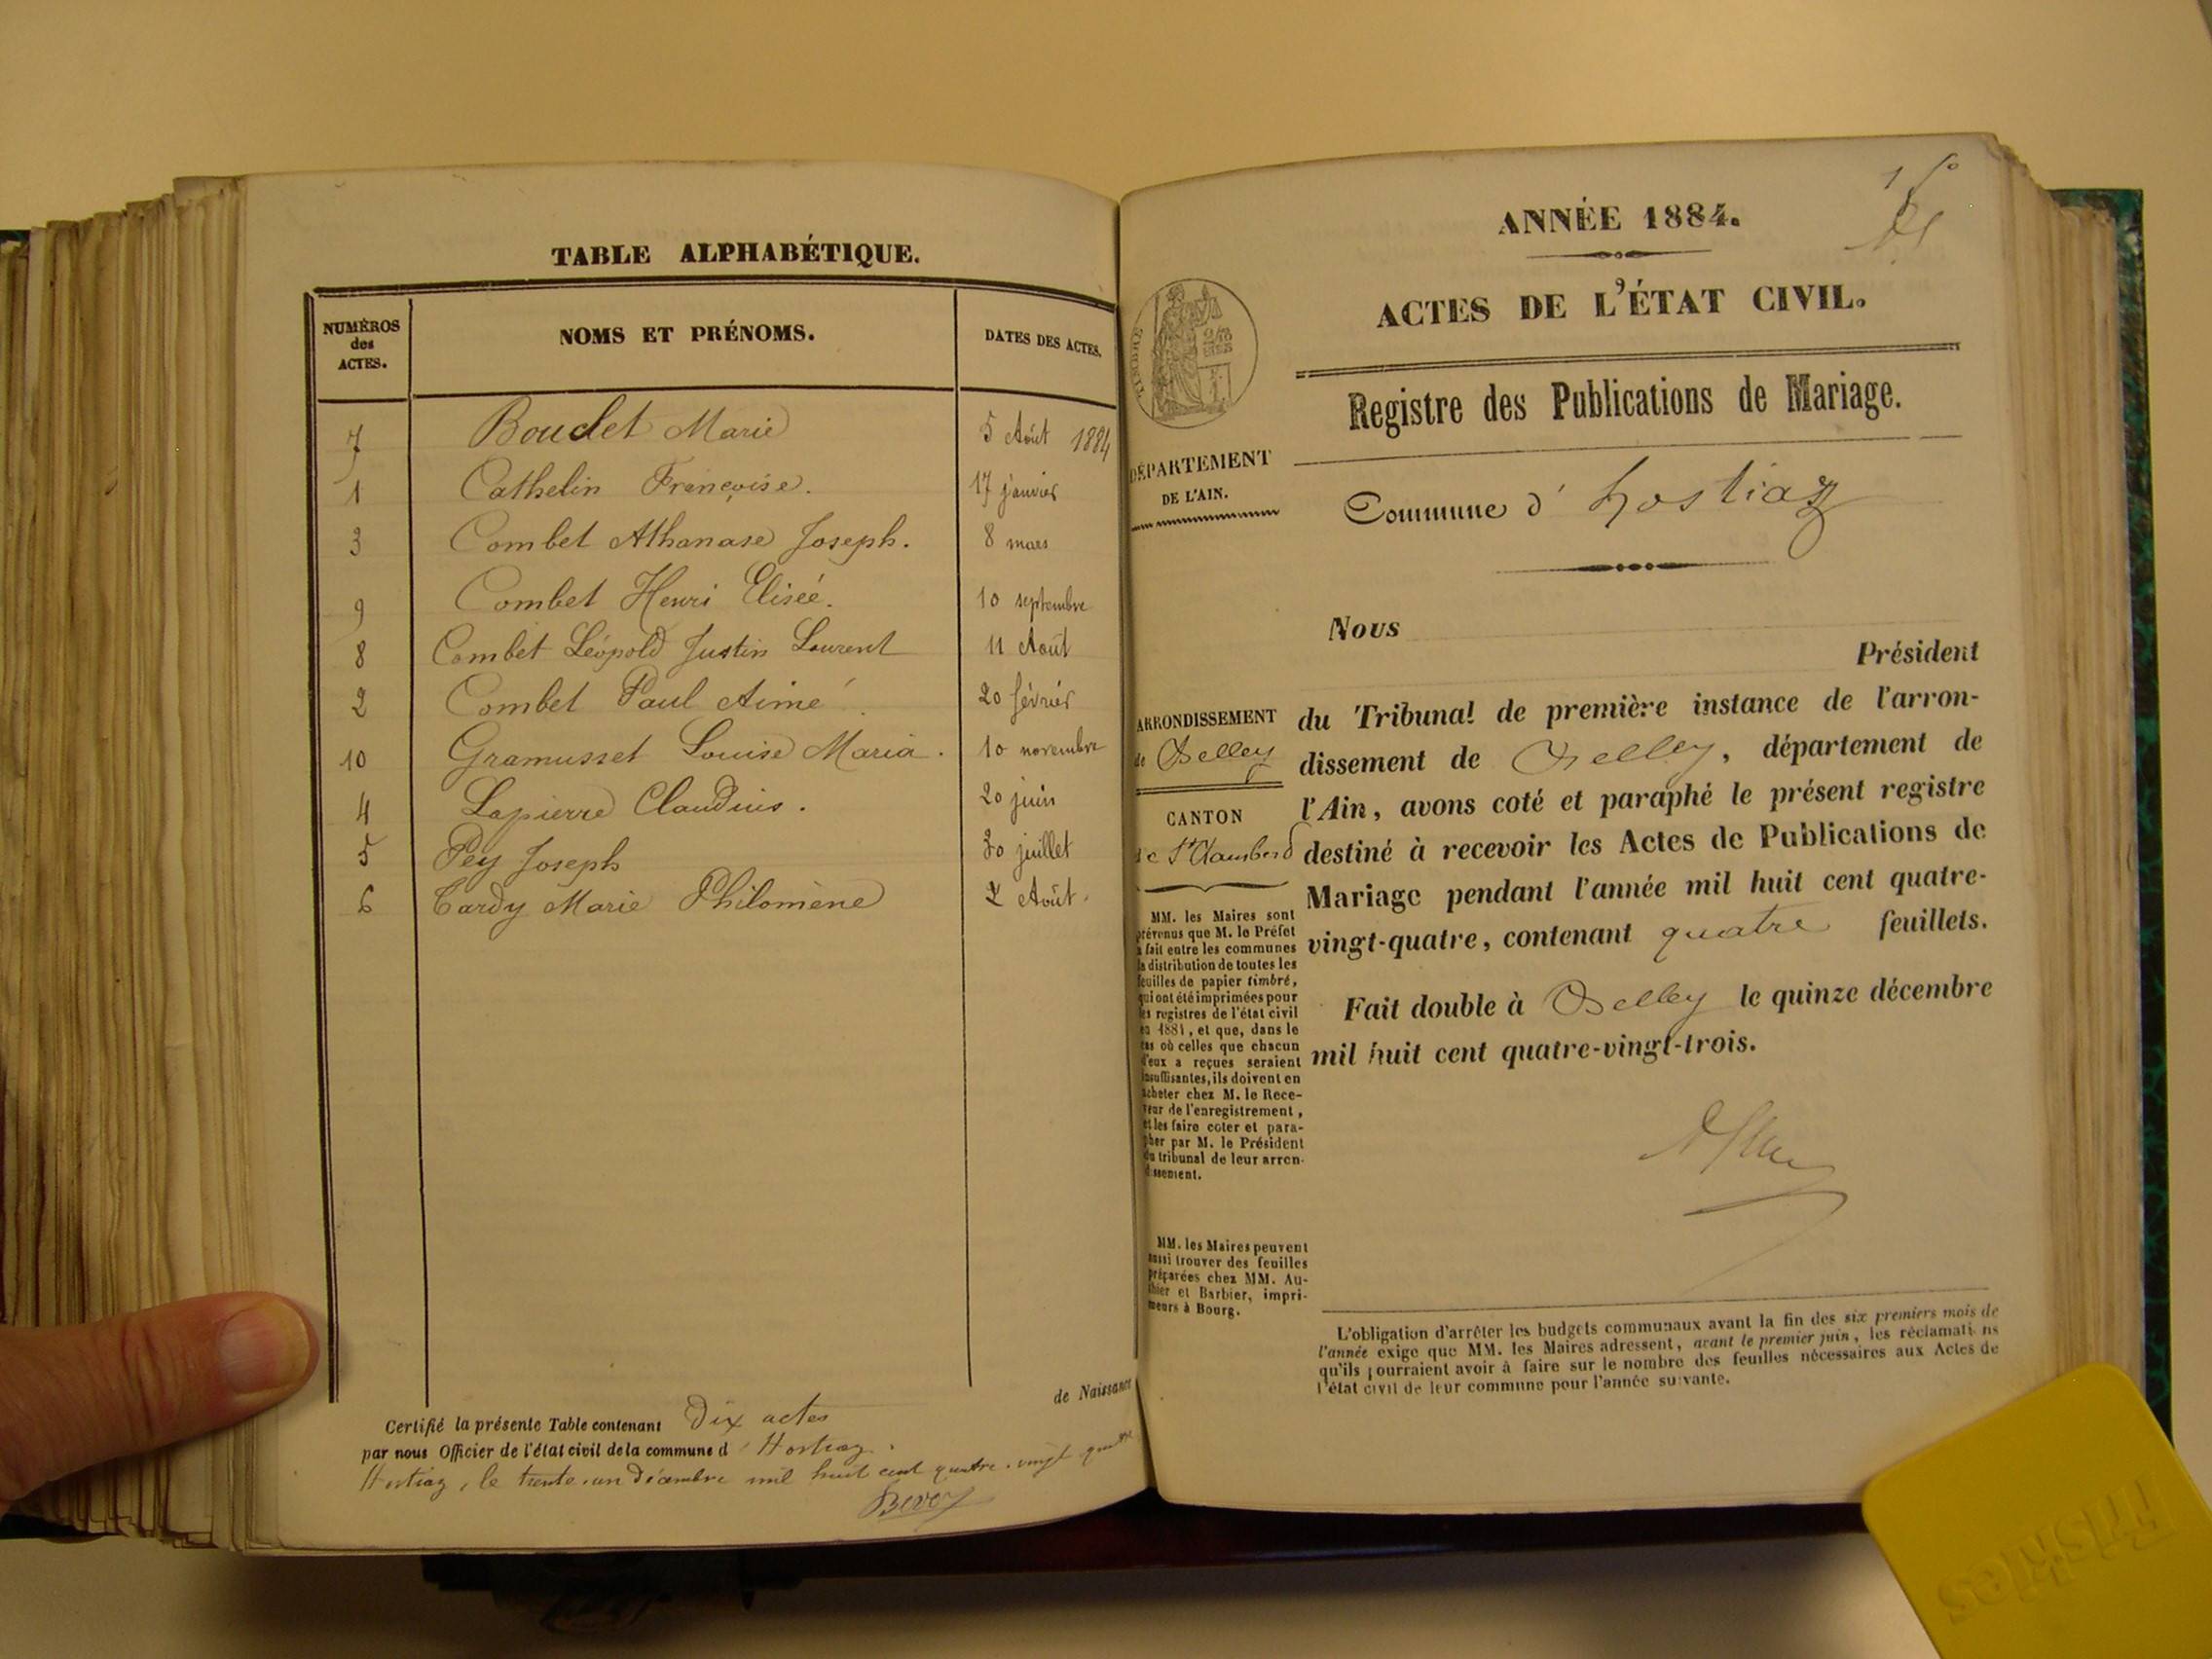 TABLE ALPHABÉTIQUE.
NUMÉROS
des
ACTES.
NOMS ET PRÉNOMS.
DATES DES ACTES.
7 Boudet Marie 5 Août 1884
1 Cathelin Françoise. 17 janvier
3 Combet Athanase Joseph. 8 mars
9 Combet Henri Elisée. 10 septembre
8 Combet Léopold Justin Laurent 11 Août
2 Combet Paul Aimé 20 février
10 Gramusset Louise Maria. 10 novembre
4 Lapierre Claudius. 20 juin
5 Pey Joseph 30 juillet
6 Tardy Marie Philomène 2 Août.
de Naissance
Certifié la présente Table contenant Dix actes
par nous Officier de l'état civil de la commune d'Hostiaz.
Hostiaz, le trente-un décembre mil huit cent quatre-vingt quatre
ANNÉE 1884.
ACTES DE L'ÉTAT CIVIL.
TIMBRE
Registre des Publications de Mariage.
DÉPARTEMENT
DE L'AIN.
Commune d'hostiaz
Nous
Président
du Tribunal de première instance de l'arron-
dissement de Belley, département de
l'Ain, avons coté et paraphé le présent registre
destiné à recevoir les Actes de Publications de
Mariage pendant l'année mil huit cent quatre-
vingt-quatre, contenant quatre feuillets.
Fait double à Belley le quinze décembre
mil huit cent quatre-vingt-trois.
ARRONDISSEMENT
de Belley
CANTON
de St Rambert
MM. les Maires sont
prévenus que M. le Préfet
a fait entre les communes
la distribution de toutes les
feuilles de papier timbré,
qui ont été imprimées pour
les registres de l'état civil
en 1884, et que, dans le
cas où celles que chacun
d'eux a reçues seraient
insuffisantes, ils doivent en
acheter chez M. le Rece-
veur de l'enregistrement,
et les faire coter et para-
pher par M. le Président
du tribunal de leur arron-
dissement.
MM. les Maires peuvent
aussi trouver des feuilles
préparées chez MM. Au-
thier et Barbier, impri-
meurs à Bourg.
L'obligation d'arrêter les budgets communaux avant la fin des six premiers mois de
l'année exige que MM. les Maires adressent, avant le premier juin, les réclamations
qu'ils pourraient avoir à faire sur le nombre des feuilles nécessaires aux Actes de
l'état civil de leur commune pour l'année suivante.
Friskies